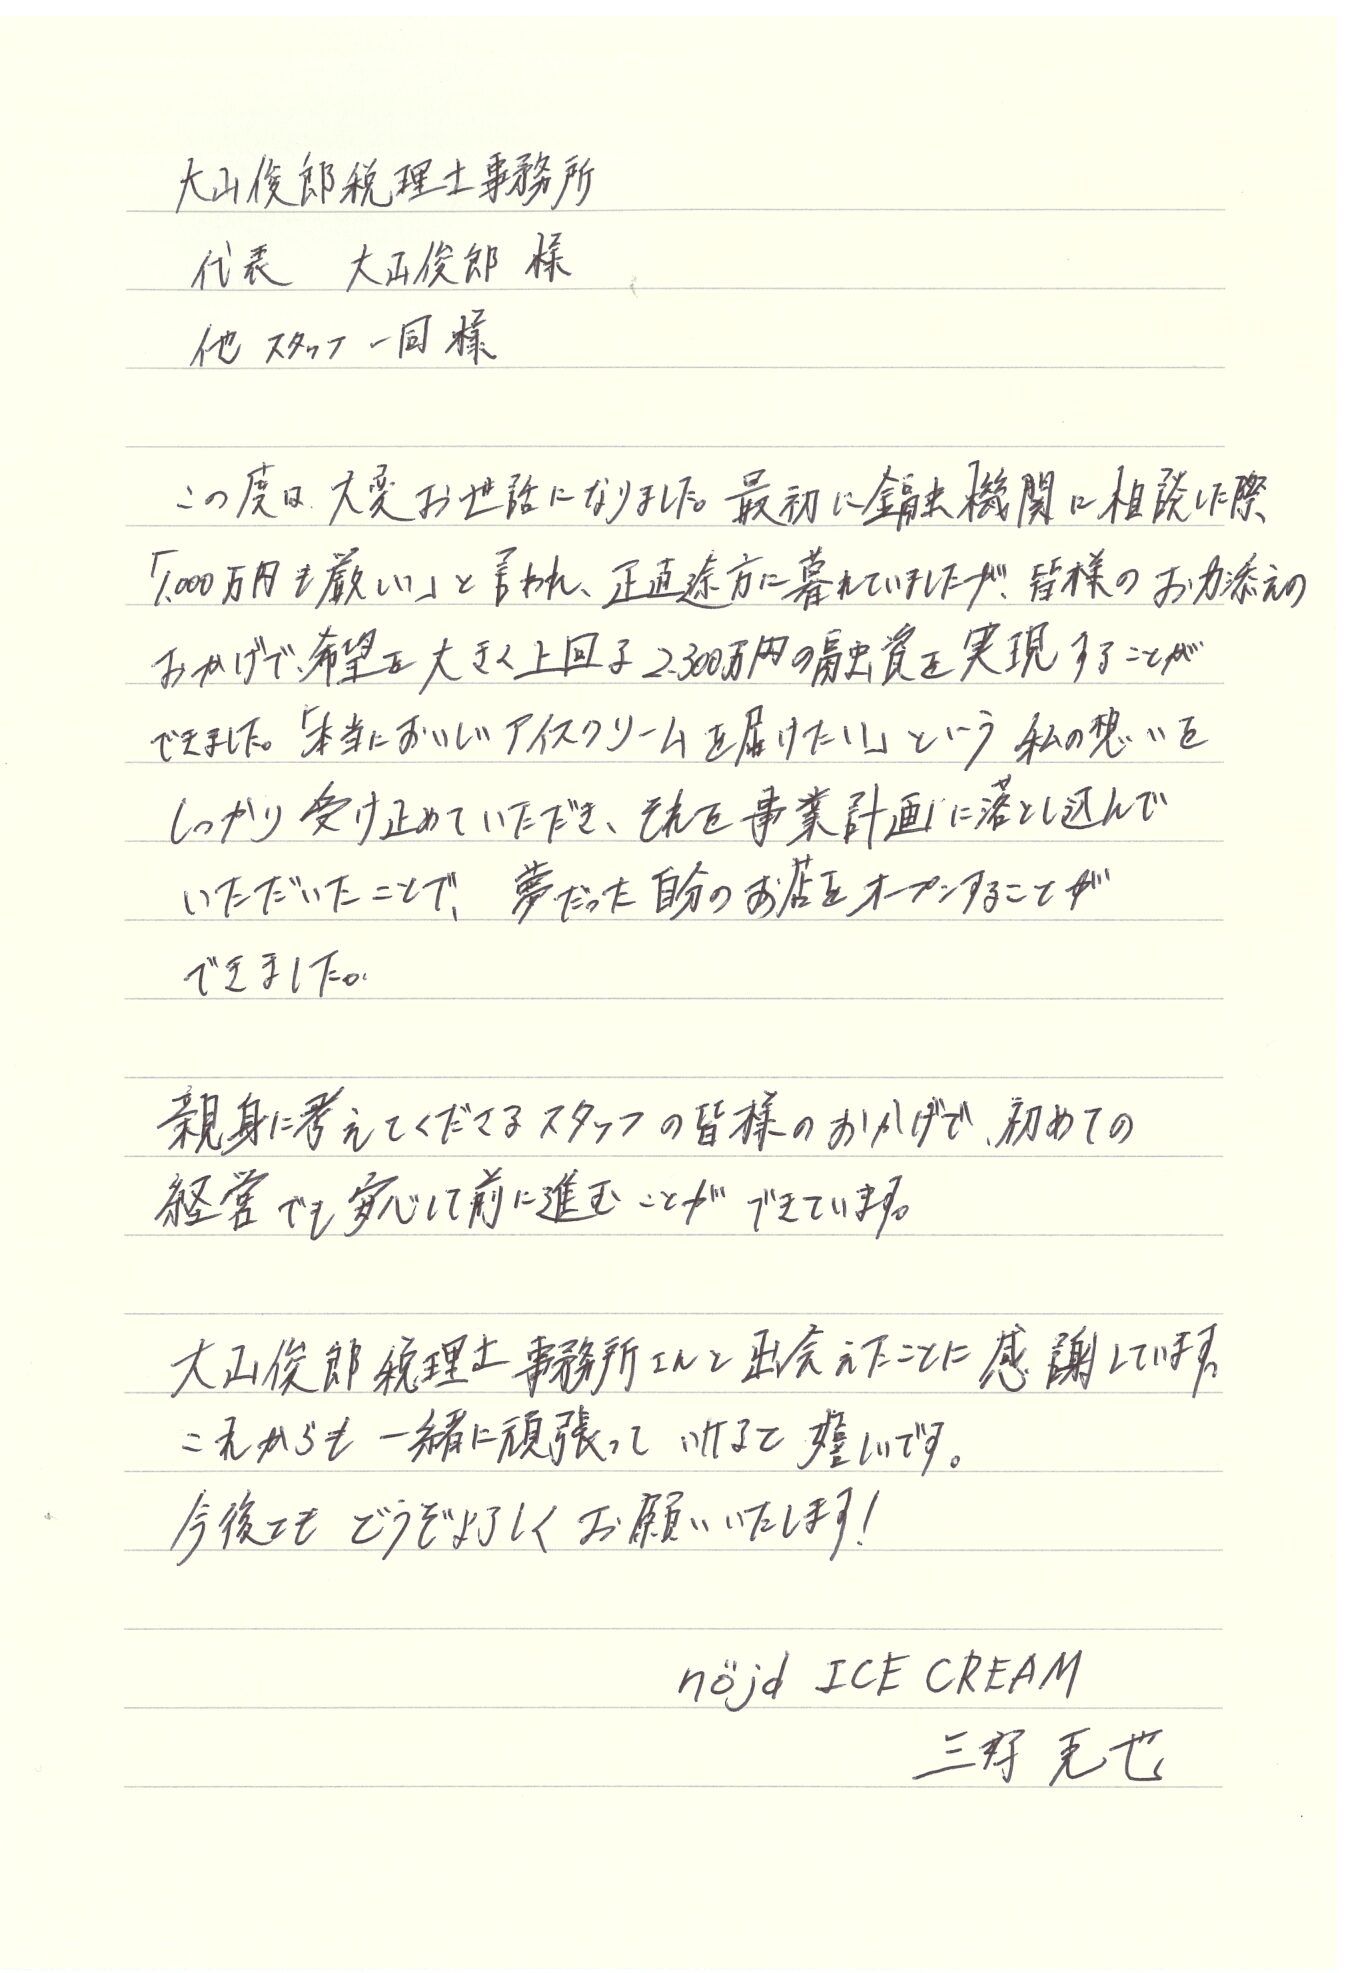 大山俊郎税理士事務所
代表 大山俊郎 様
他 スタッフ 一同 様
この度は 大変お世話になりました。最初に金融機関に相談した際、
「1,000万円も厳しい」と言われ、正直途方に暮れていましたが、皆様のお力添えの
おかげで、希望を大きく上回る2,300万円の融資を実現することが
できました。「本当においしいアイスクリームを届けたい」という 私の想いを
しっかり受け止めていただき、それを事業計画に落とし込んで
いただいたことで、夢だった自分のお店をオープンすることが
できました。
親身に考えてくださるスタッフの皆様のおかげで、初めての
経営でも安心して前に進むことができています。
大山俊郎税理士事務所さんと出会えたことに感謝しています。
これからも一緒に頑張っていけると嬉しいです。
今後ともどうぞよろしくお願いいたします!
nöjd ICE CREAM
三好 克也